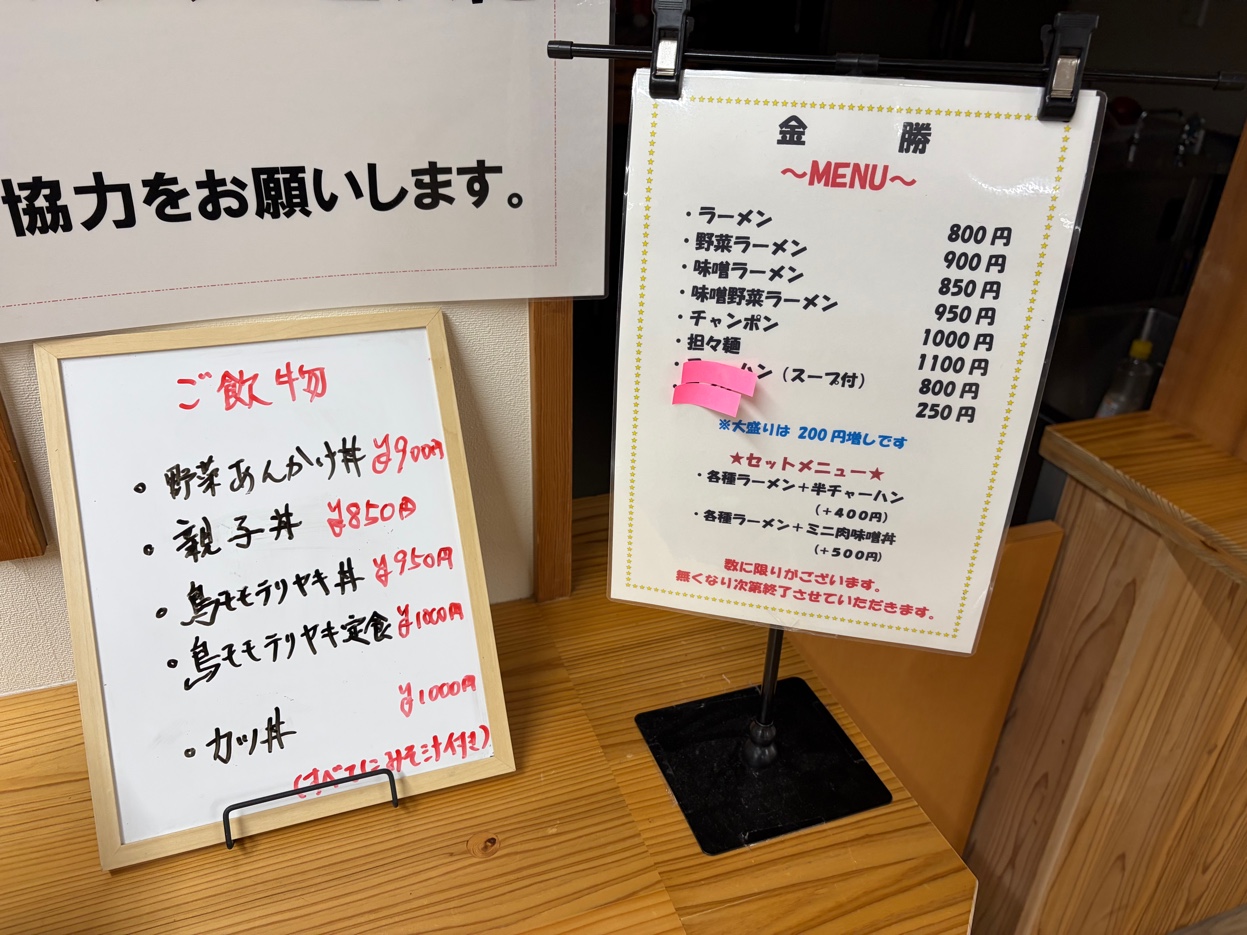 協力をお願いします。
ご飲物
・野菜あんかけ丼 ¥900円
・親子丼 ¥850円
・鳥モモテリヤキ丼 ¥950円
・鳥モモテリヤキ定食 ¥1000円
・カツ丼 ¥1000円
(すべてにみそ汁付き)
金 勝
～MENU～
・ラーメン 800円
・野菜ラーメン 900円
・味噌ラーメン 850円
・味噌野菜ラーメン 950円
・チャンポン 1000円
・担々麺 1100円
ハン（スープ付） 800円
250円
※大盛りは 200円増しです
★セットメニュー★
・各種ラーメン＋半チャーハン
（＋400円）
・各種ラーメン＋ミニ肉味噌丼
（＋500円）
数に限りがございます。
無くなり次第終了させていただきます。